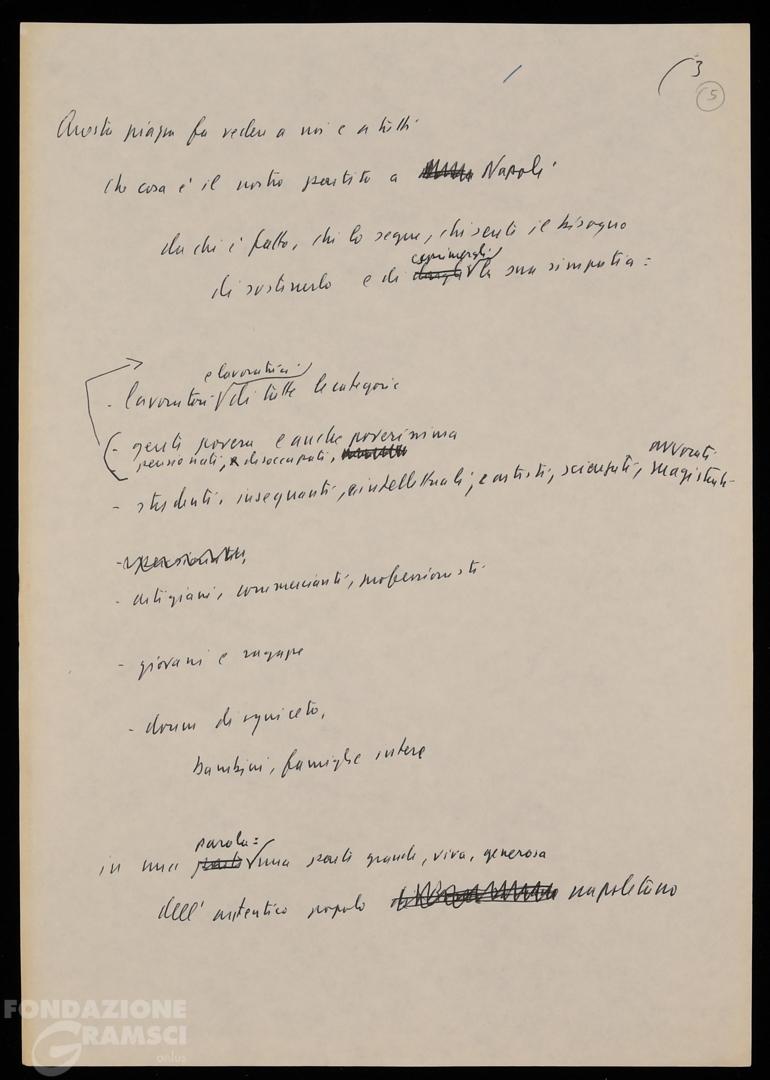 3
5
Questa piazza fa vedere a noi e a tutti
che cosa è il nostro partito a Napoli
da chi è fatto, chi lo segue, chi sente il bisogno
esprimergli
di sostenerlo e di la sua simpatia:
e lavoratrici
- lavoratori di tutte le categorie
- gente povera e anche poverissima
- pensionati, disoccupati,
avvocati
- studenti, insegnanti, intellettuali, artisti, scienziati, magistrati
- artigiani, commercianti, professionisti
- giovani e ragazze
- donne di ogni ceto,
bambini, famiglie intere
parola:
in una una parte grande, viva, generosa
dell'autentico popolo napoletano
FONDAZIONE
GRAMSCI
onlus